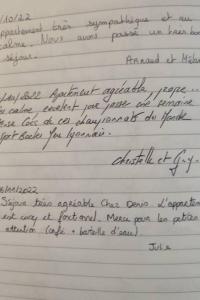 /10/22
ppartement très sympathique et au
calme. Nous avons passé un très bon
séjour.
Arnaud et
2022 Appartement agréable, propre
calme excellent pour passer une semaine
lors de ces championnats du Monde
Christelle et Guy
/2022
Séjour très agréable chez Denis. L'appartem
est cosy et fonctionnel. Merci pour les petites
attention (café + bouteille d'eau).
Julie